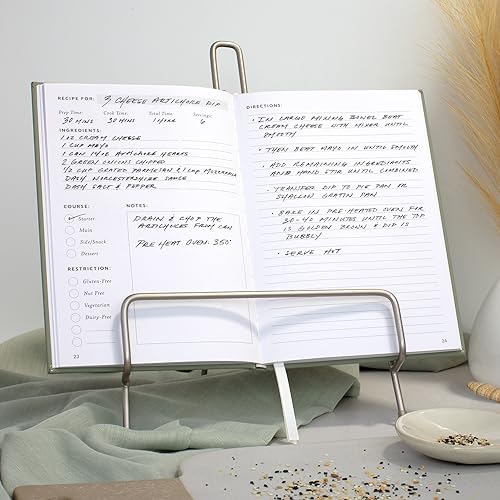 RECIPE FOR: 3 CHEESE ARTICHOKE DIP
Prep Time: Cook Time: Total Time: Servings:
30 MINS 30 MINS 1 HR 6
INGREDIENTS:
1 OZ CREAM CHEESE
1 CUP MAYO
1 CAN 14 OZ ARTICHOKE HEARTS
2 GREEN ONIONS CHIPPED
1/2 CUP GRATED PARMESAN & 1 CUP MOZZARELLA
DASH WORCESTERSHIRE SAUCE
DASH SALT & PEPPER
COURSE:
Starter
Main
Side/Snack
Dessert
RESTRICTION:
Gluten-Free
Nut Free
Vegetarian
Dairy-Free
NOTES:
DRAIN & CHOP THE
ARTICHOKES FROM CAN
PRE HEAT OVEN 350°
23
DIRECTIONS:
• IN LARGE MIXING BOWEL BEAT
CREAM CHEESE WITH MIXER UNTIL
SMOOTH
• THEN BEAT MAYO IN UNTIL SMOOTH
• ADD REMAINING INGREDIANTS
AND HAND STIR UNTIL COMBINED
• TRANSFER DIP TO PIE PAN OR
SHALLOW GRATIN PAN
• BAKE IN PRE-HEATED OVEN FOR
30-40 MINUTES UNTIL THE TOP
IS GOLDEN BROWN & DIP IS
BUBBLY
• SERVE HOT
24